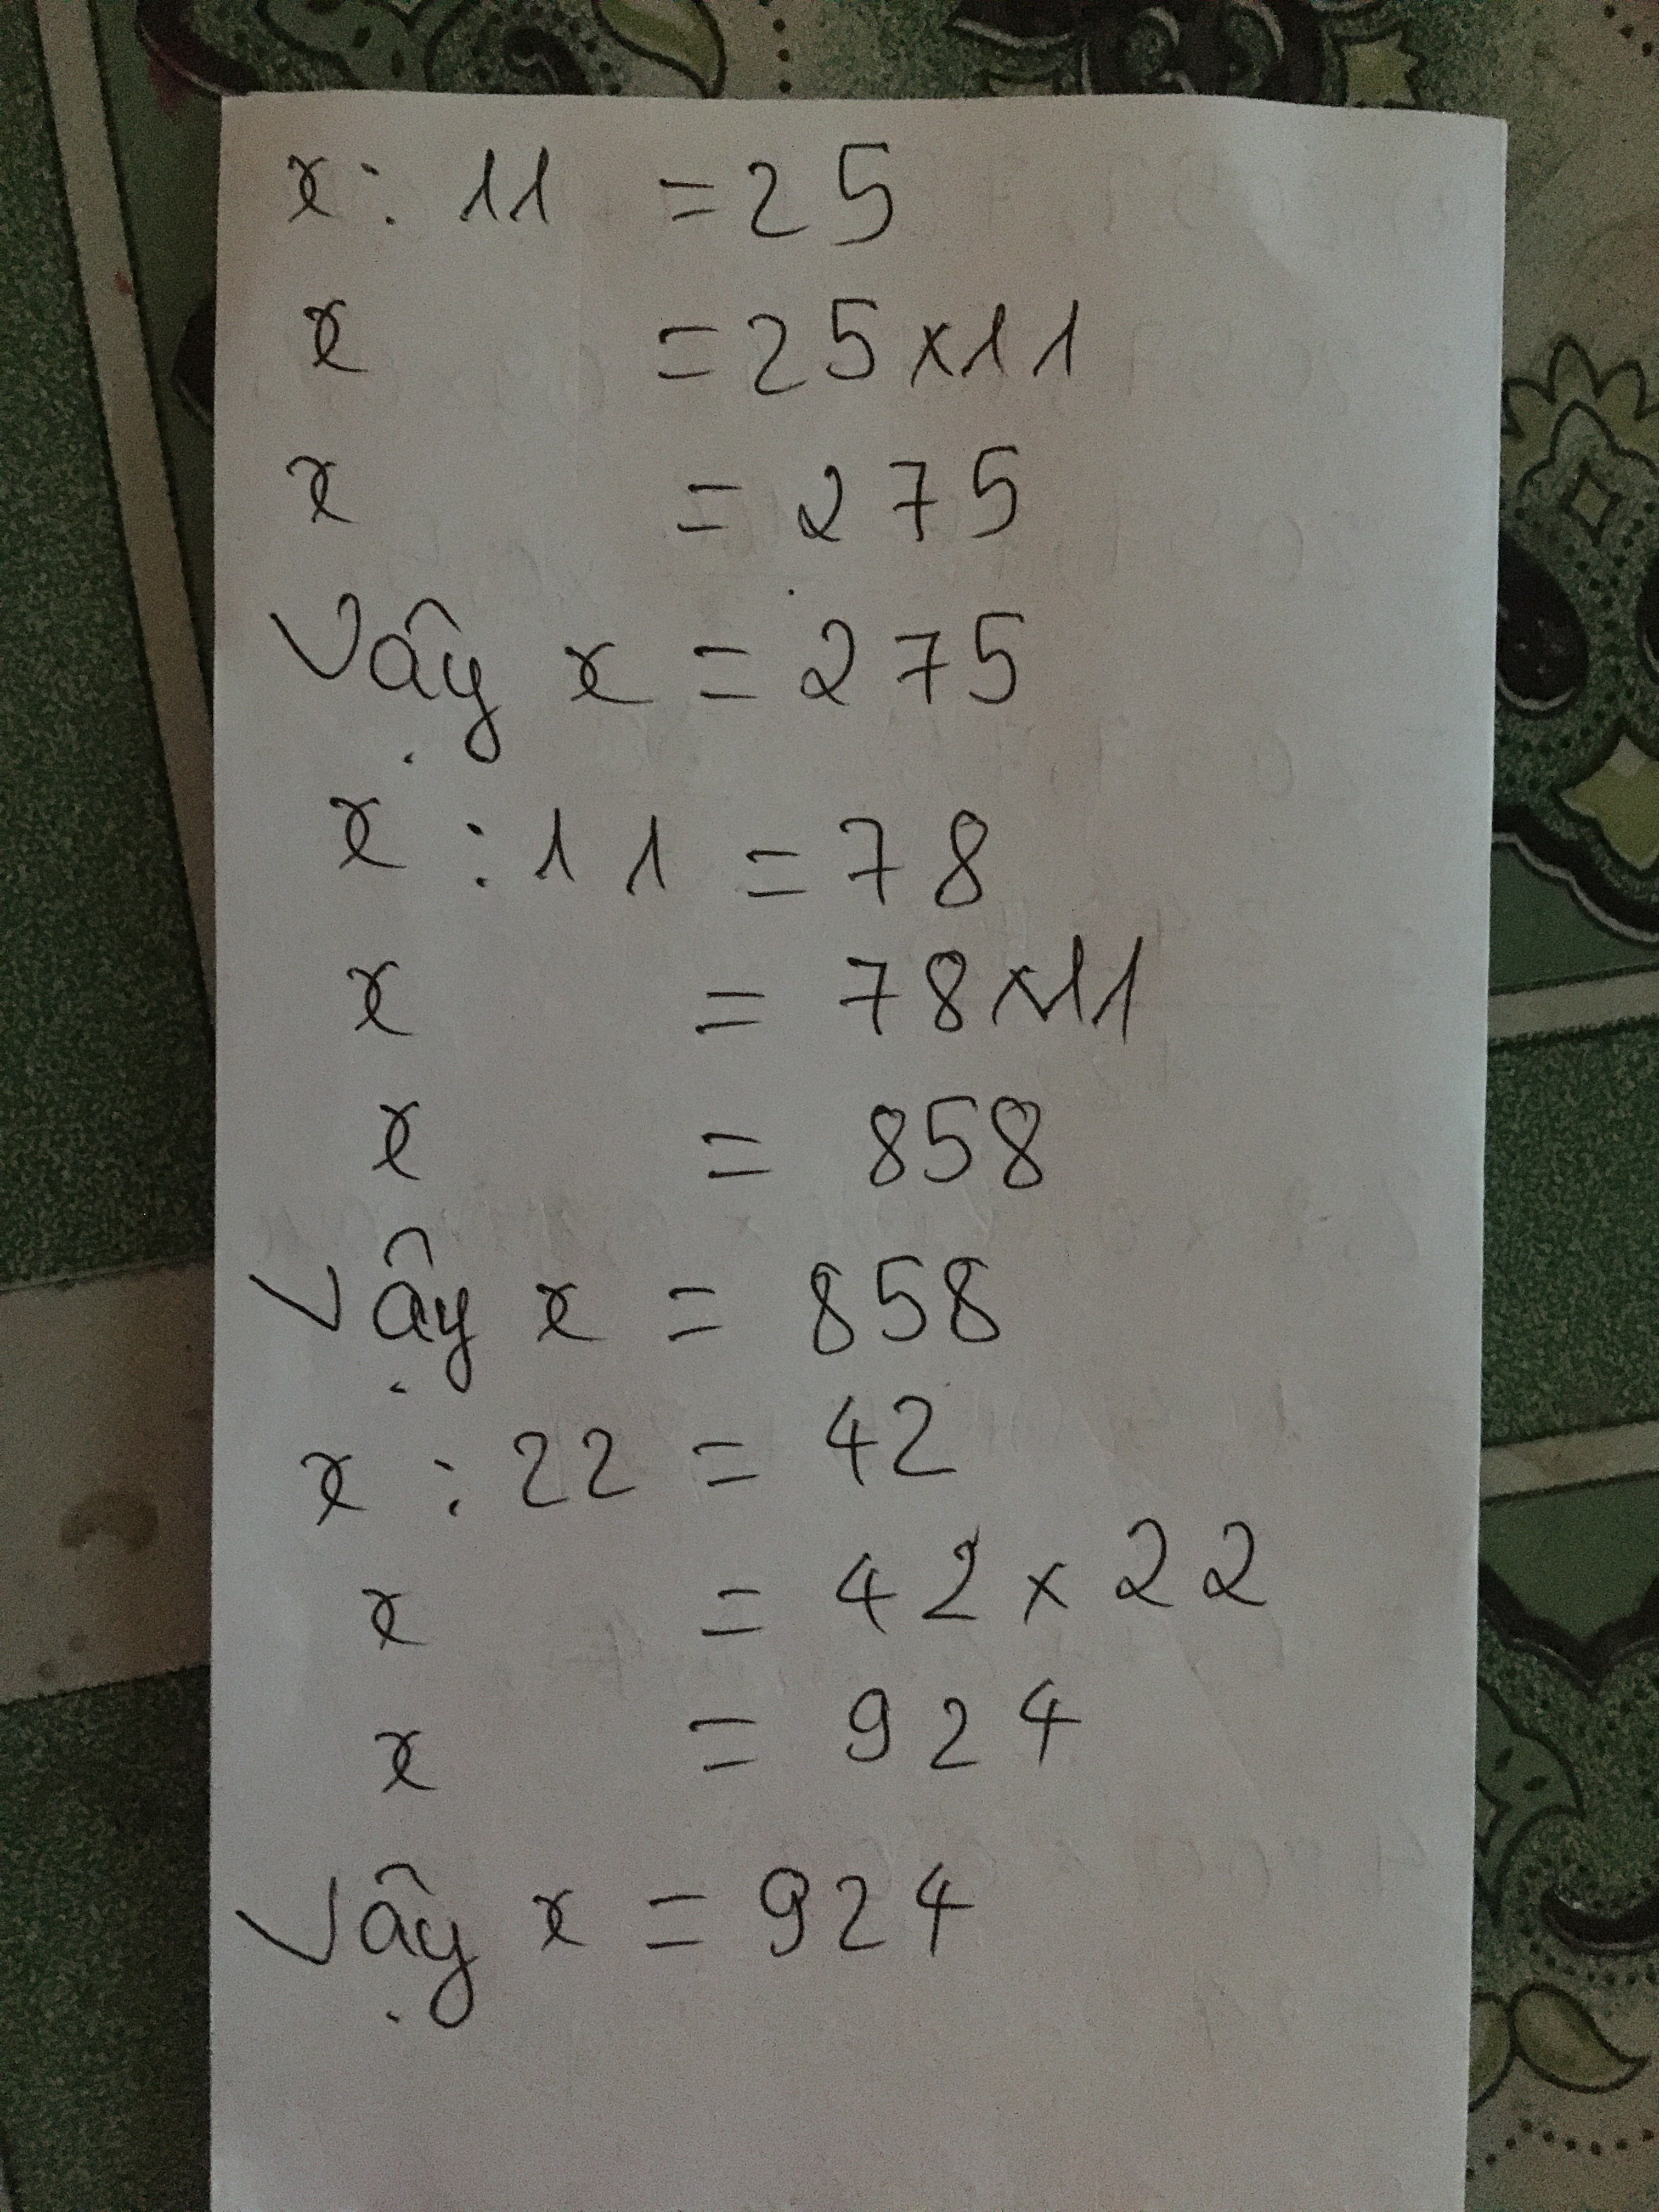 x : 11 = 25
x = 25 x 11
x = 275
Vậy x = 275
x : 11 = 78
x = 78 x 11
x = 858
Vậy x = 858
x : 22 = 42
x = 42 x 22
x = 924
Vậy x = 924